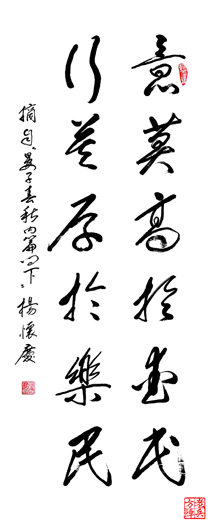 意莫高於愛民
行莫厚於樂民
摘自晏子春秋內篇問下楊懷慶